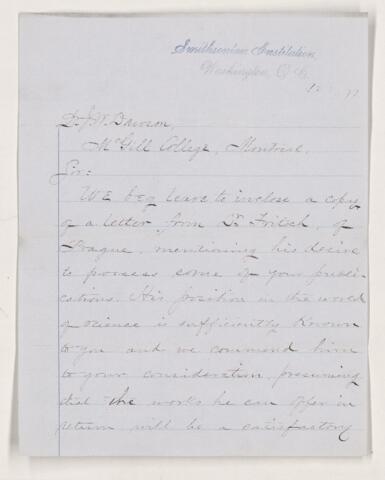 Smithsonian Institution,
Washington, D. C.
Dr J. W. Dawson,
McGill College, Montreal.
Sir:
We beg leave to inclose a copy
of a letter from Dr Fritsch, of
Prague, mentioning his desire
to possess some of your publi-
cations. His position in the world
of science is sufficiently known
to you and we commend him
to your consideration, presuming
that the works he can offer in
return will be a satisfactory